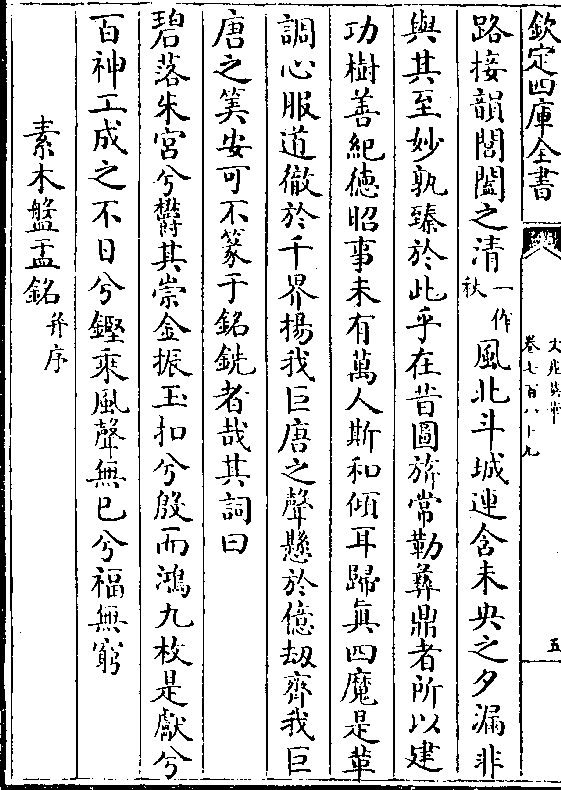 欽定四庫全書
文苑英華
卷七百八十九
五
路接韻閶闔之清一作秋風北斗城連含未央之夕漏非
與其至妙孰臻於此乎在昔圖旂常勒彝鼎者所以建
功樹善紀徳昭事未有萬人斯和傾耳歸真四魔是革
調心服道徹於千界揚我巨唐之聲懸於億劫齊我巨
唐之筭安可不篆于銘銑者哉其詞曰
碧落朱宮兮欝其崇金振玉扣兮殷而鴻九枚是獻兮
百神工成之不日兮鏗乘風聲無已兮福無窮
素木盤盂銘并序